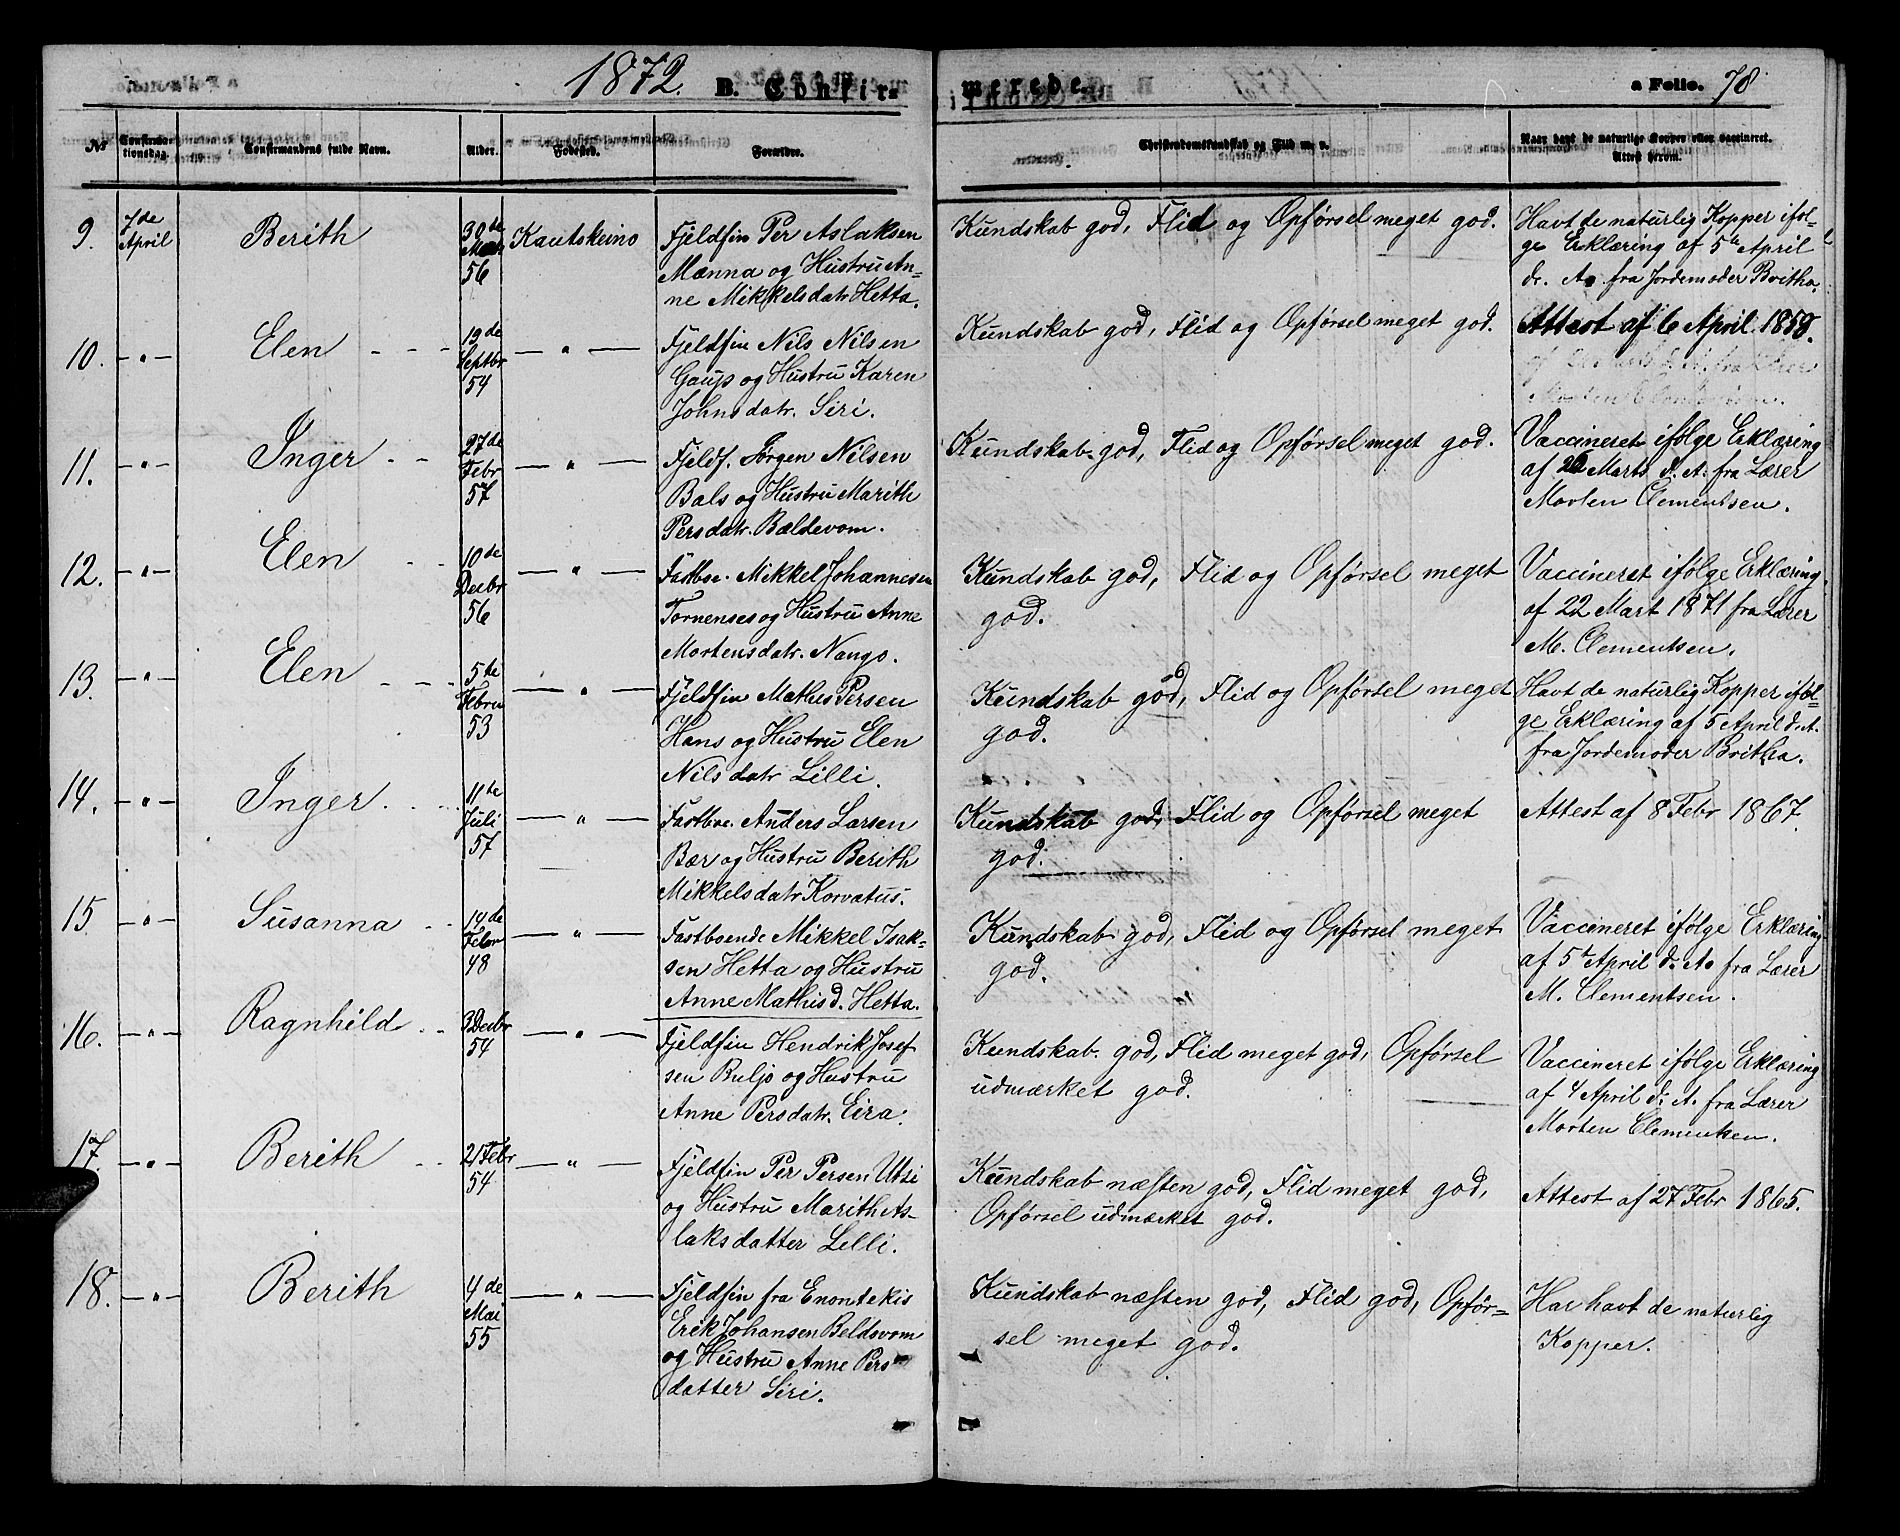 1872. B. Confirmerede. a Folio. 78
No Confirmationsdag. Confirmandens fulde Navn. Alder. Fødested. Forældre. Christendomskundskab og Flid m. v. Naar havt de naturlige Kopper eller vaccineret. Attest herom.
9. 7de April Berith 30de Mar 56 Kautokeino
Fjeldfin Per Aslaksen
Mænna og Hustru An-
ne Mikkelsdatr Hetta.
Kundskab god, Flid og Opførsel meget god.
Havt de naturlig Kopper iføl-
ge Erklæring af 5te April
d. A. fra Jordemoder Britha.
10. —"— Elen 19de Septbr 54 —"—
Fjeldfin Nils Nilsen
Gaup og Hustru Karen
Johnsdatr. Siri.
Kundskab god, Flid og Opførsel meget god.
Attest af 6 April 1859.
11. —"— Inger 27de Febr 57 —"—
Fjeldf. Jørgen Nilsen
Bals og Hustru Marith
Persdatr. Bældevom.
Kundskab god, Flid og Opførsel meget god.
Vaccineret ifølge Erklæring
af 26 Marts d. A. fra Lærer
Morten Clementsen.
12. —"— Elen 10de Decbr 56 —"—
Fastboe. Mikkel Johannesen
Tornenses og Hustru Anne
Mortensdatr. Nango.
Kundskab god, Flid og Opførsel meget
god.
Vaccineret ifølge Erklæring
af 22 Mart 1871 fra Lærer
M. Clementsen.
13. —"— Elen 5te Febru 53 —"—
Fjeldfin Mathis Persen
Hans og Hustru Elen
Nilsdatr Lilli.
Kundskab god, Flid og Opførsel meget
god.
Havt de naturlig Kopper iføl-
ge Erklæring af 5 April d. A.
fra Jordemoder Britha.
14. —"— Inger 11te Juli 57 —"—
Fastboe. Anders Larsen
Bær og Hustru Berith
Mikkelsdatr Korvatus.
Kundskab god, Flid og Opførsel meget
god.
Attest af 8 Febr 1867.
15 —"— Susanna 14de Febr 48 —"—
Fastboende Mikkel Isak-
sen Hetta og Hustru
Anne Mathisd. Hetta.
Kundskab god, Flid og Opførsel meget
god.
Vaccineret ifølge Erklæring
af 5te April d. A. fra Lærer
M. Clementsen.
16. —"— Ragnhild 3 Decbr 54 —"—
Fjeldfin Hendrik Josef
sen Buljo og Hustru
Anne Persdatr. Eira.
Kundskab god, Flid meget god, Opførsel
udmærket god.
Vaccineret ifølge Erklæring
af 4 April d. A. fra Lærer
Morten Clementsen.
17. —"— Berith 21 Febr 54 —"—
Fjeldfin Per Persen Utsi
og Hustru Marith As-
laksdatter Lilli.
Kundskab næsten god, Flid meget god,
Opførsel udmærket god.
Attest af 27 Febr 1865.
18. —"— Berith 4de Mai 55 —"—
Fjeldfin fra Enontekis
Erik Johansen Beldsvom
og Hustru Anne Pers
datter Siri.
Kundskab næsten god, Flid god, Opfør-
sel meget god.
Har havt de naturlig
Kopper.